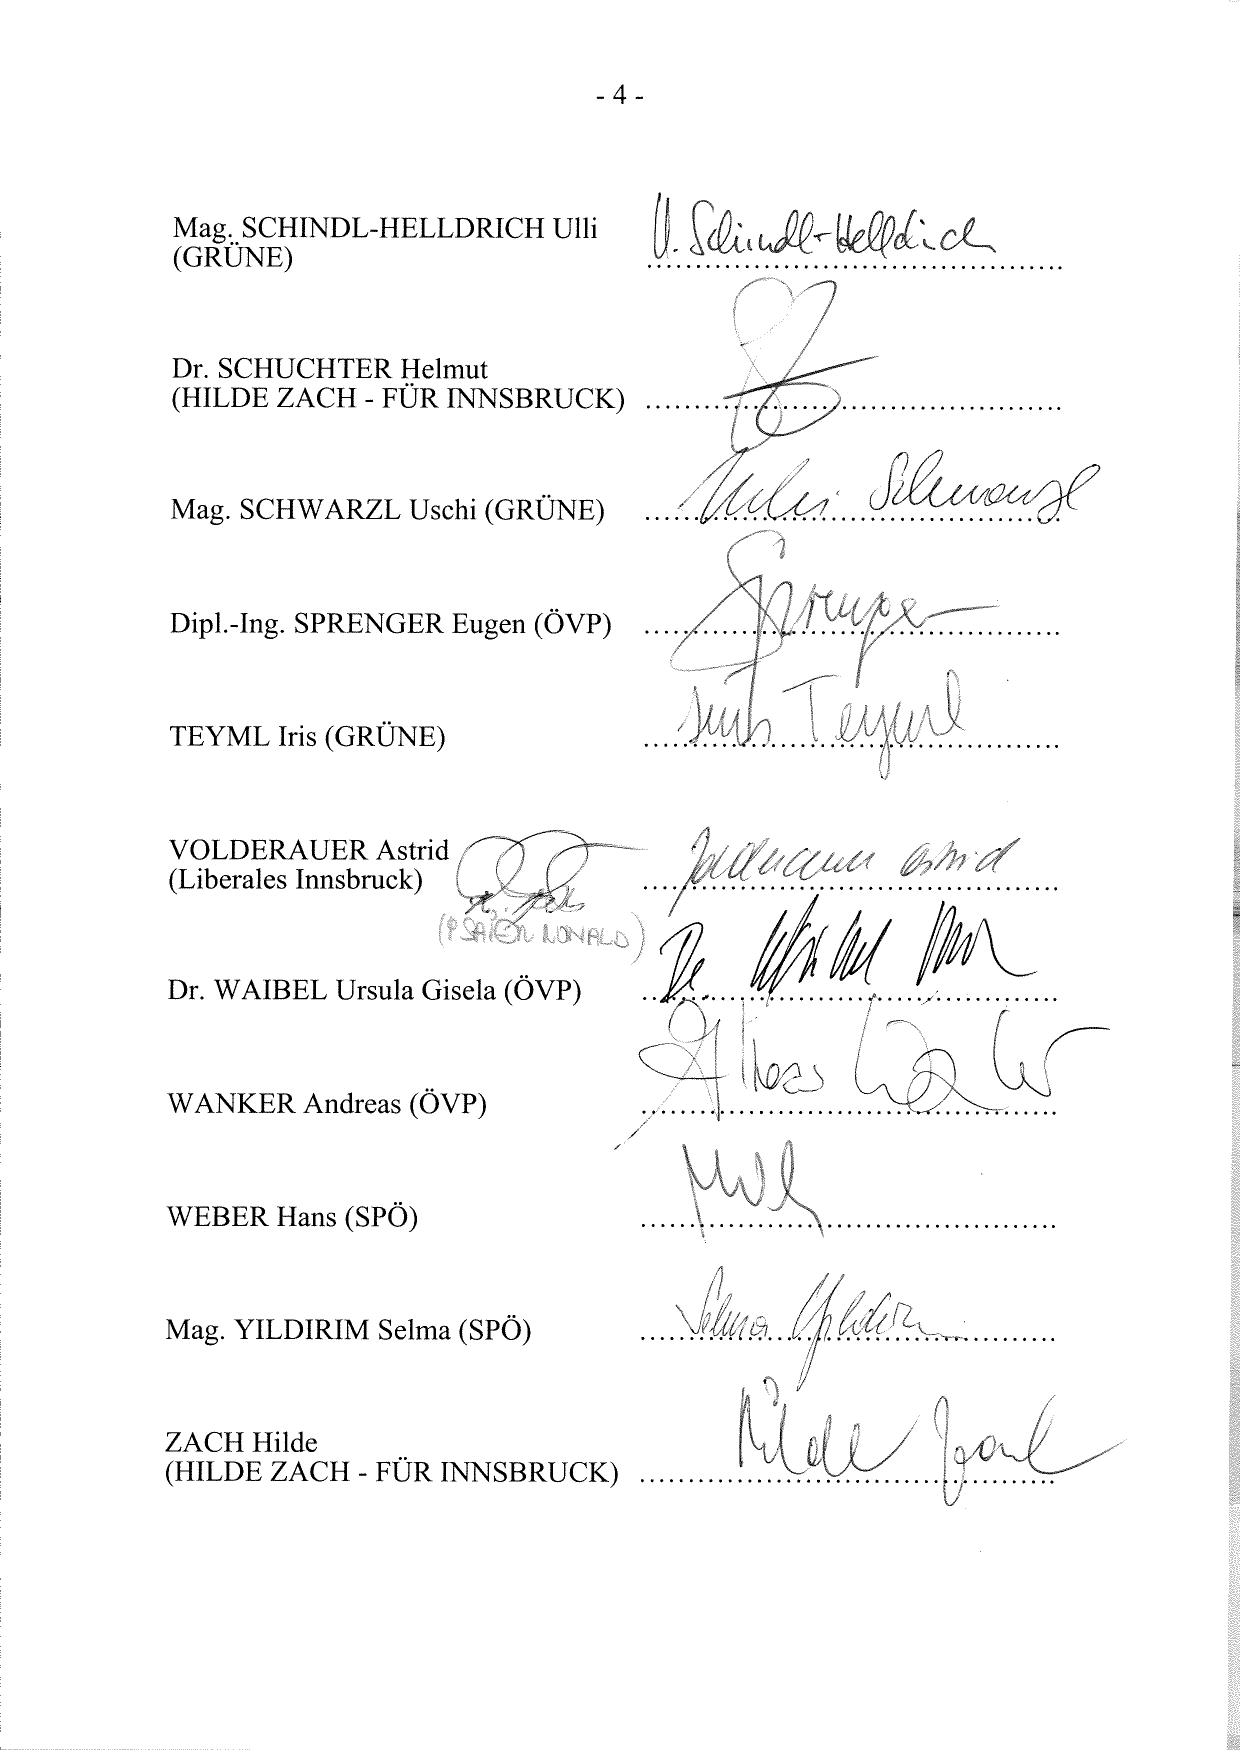 - 4 -
Mag. SCHINDL-HELLDRICH Ulli U. Schindl-Helldrich
(GRÜNE) ........................................
Dr. SCHUCHTER Helmut
(HILDE ZACH - FÜR INNSBRUCK) ........................................
Mag. SCHWARZL Uschi (GRÜNE) ........................................ Uschi Schwarzl
Dipl.-Ing. SPRENGER Eugen (ÖVP) ........................................ Sprenger
TEYML Iris (GRÜNE) ........................................ Iris Teyml
VOLDERAUER Astrid Astrid
(Liberales Innsbruck) ........................................
(PSAIER RONALD)
Dr. WAIBEL Ursula Gisela (ÖVP) ........................................ Dr.
WANKER Andreas (ÖVP) ........................................ Andreas
WEBER Hans (SPÖ) ........................................
Mag. YILDIRIM Selma (SPÖ) ........................................ Selma Yildirim
ZACH Hilde Hilde Zach
(HILDE ZACH - FÜR INNSBRUCK) ........................................